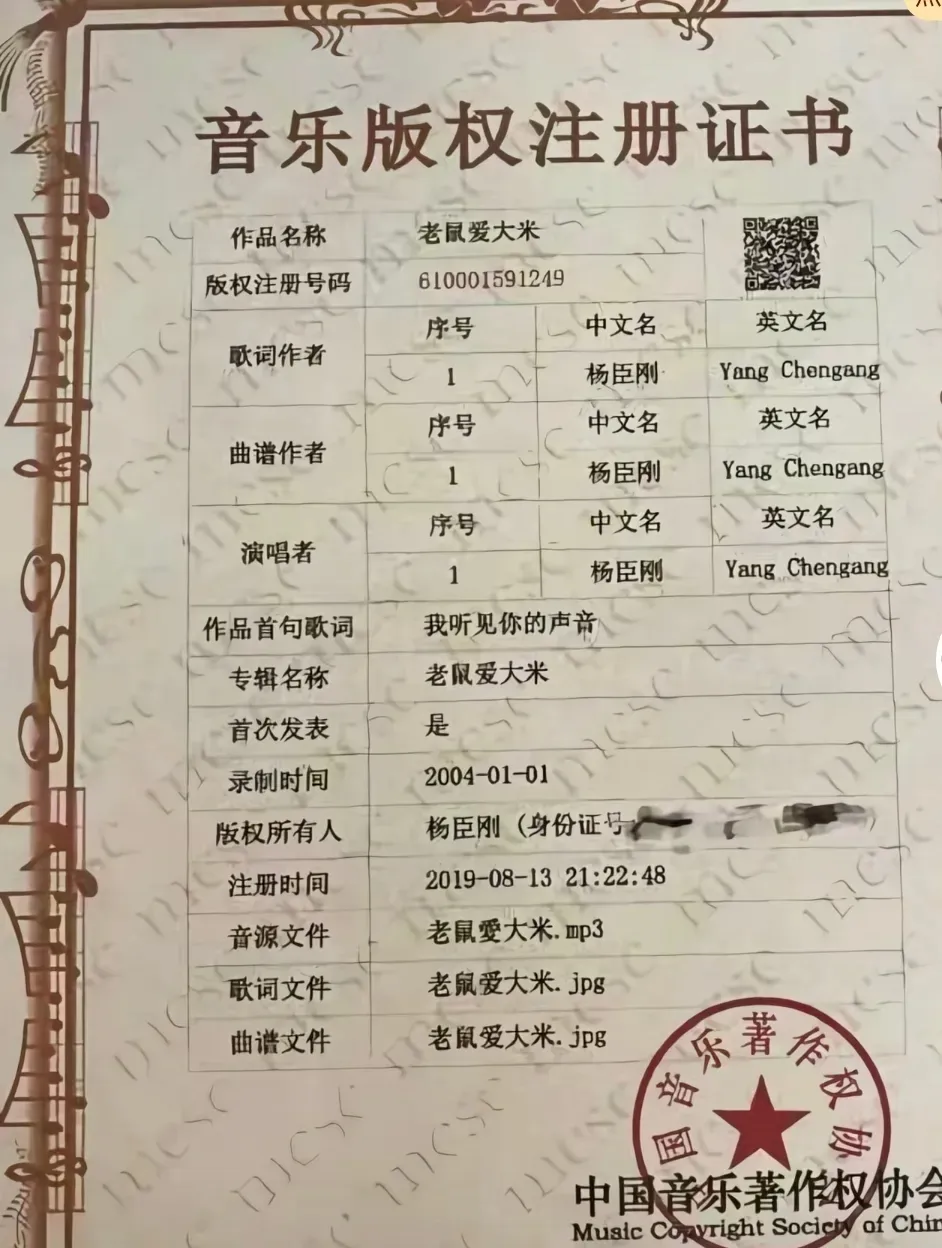 音乐版权注册证书
作品名称 老鼠爱大米
版权注册号码 610001591249
歌词作者
序号 中文名 英文名
1 杨臣刚 Yang Chengang
曲谱作者
序号 中文名 英文名
1 杨臣刚 Yang Chengang
演唱者
序号 中文名 英文名
1 杨臣刚 Yang Chengang
作品首句歌词 我听见你的声音
专辑名称 老鼠爱大米
首次发表 是
录制时间 2004-01-01
版权所有人 杨臣刚 (身份证号
注册时间 2019-08-13 21:22:48
音源文件 老鼠愛大米.mp3
歌词文件 老鼠爱大米.jpg
曲谱文件 老鼠爱大米.jpg
国音乐著作权协
中国音乐著作权协会
Music Copyright Society of Chin
mcsc